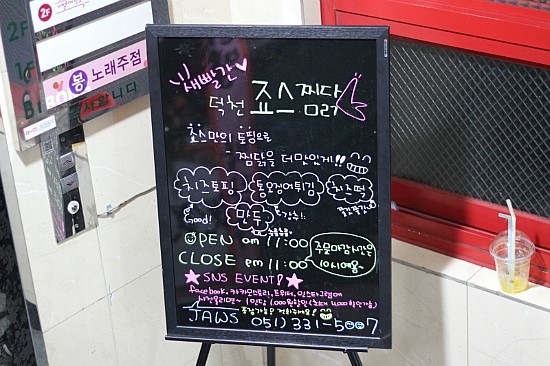 2F
2F
1F
봉 노래주점
B1
사랍니다
새빨간♡
덕천 죠스찜닭
죠스만의 토핑으로
찜닭을 더 맛있게!!
치즈토핑
통오징어튀김
치즈떡
Good!
만두
OPEN am 11:00
CLOSE pm 11:00
주문마감시간은
10시예용~
★ SNS EVENT! ★
facebook, 카카오스토리, 트위터, 인스타그램에
사진올리면~ 1인당 1,000원할인 (최대 4,000원할인가능)
JAWS 051) 331-5007